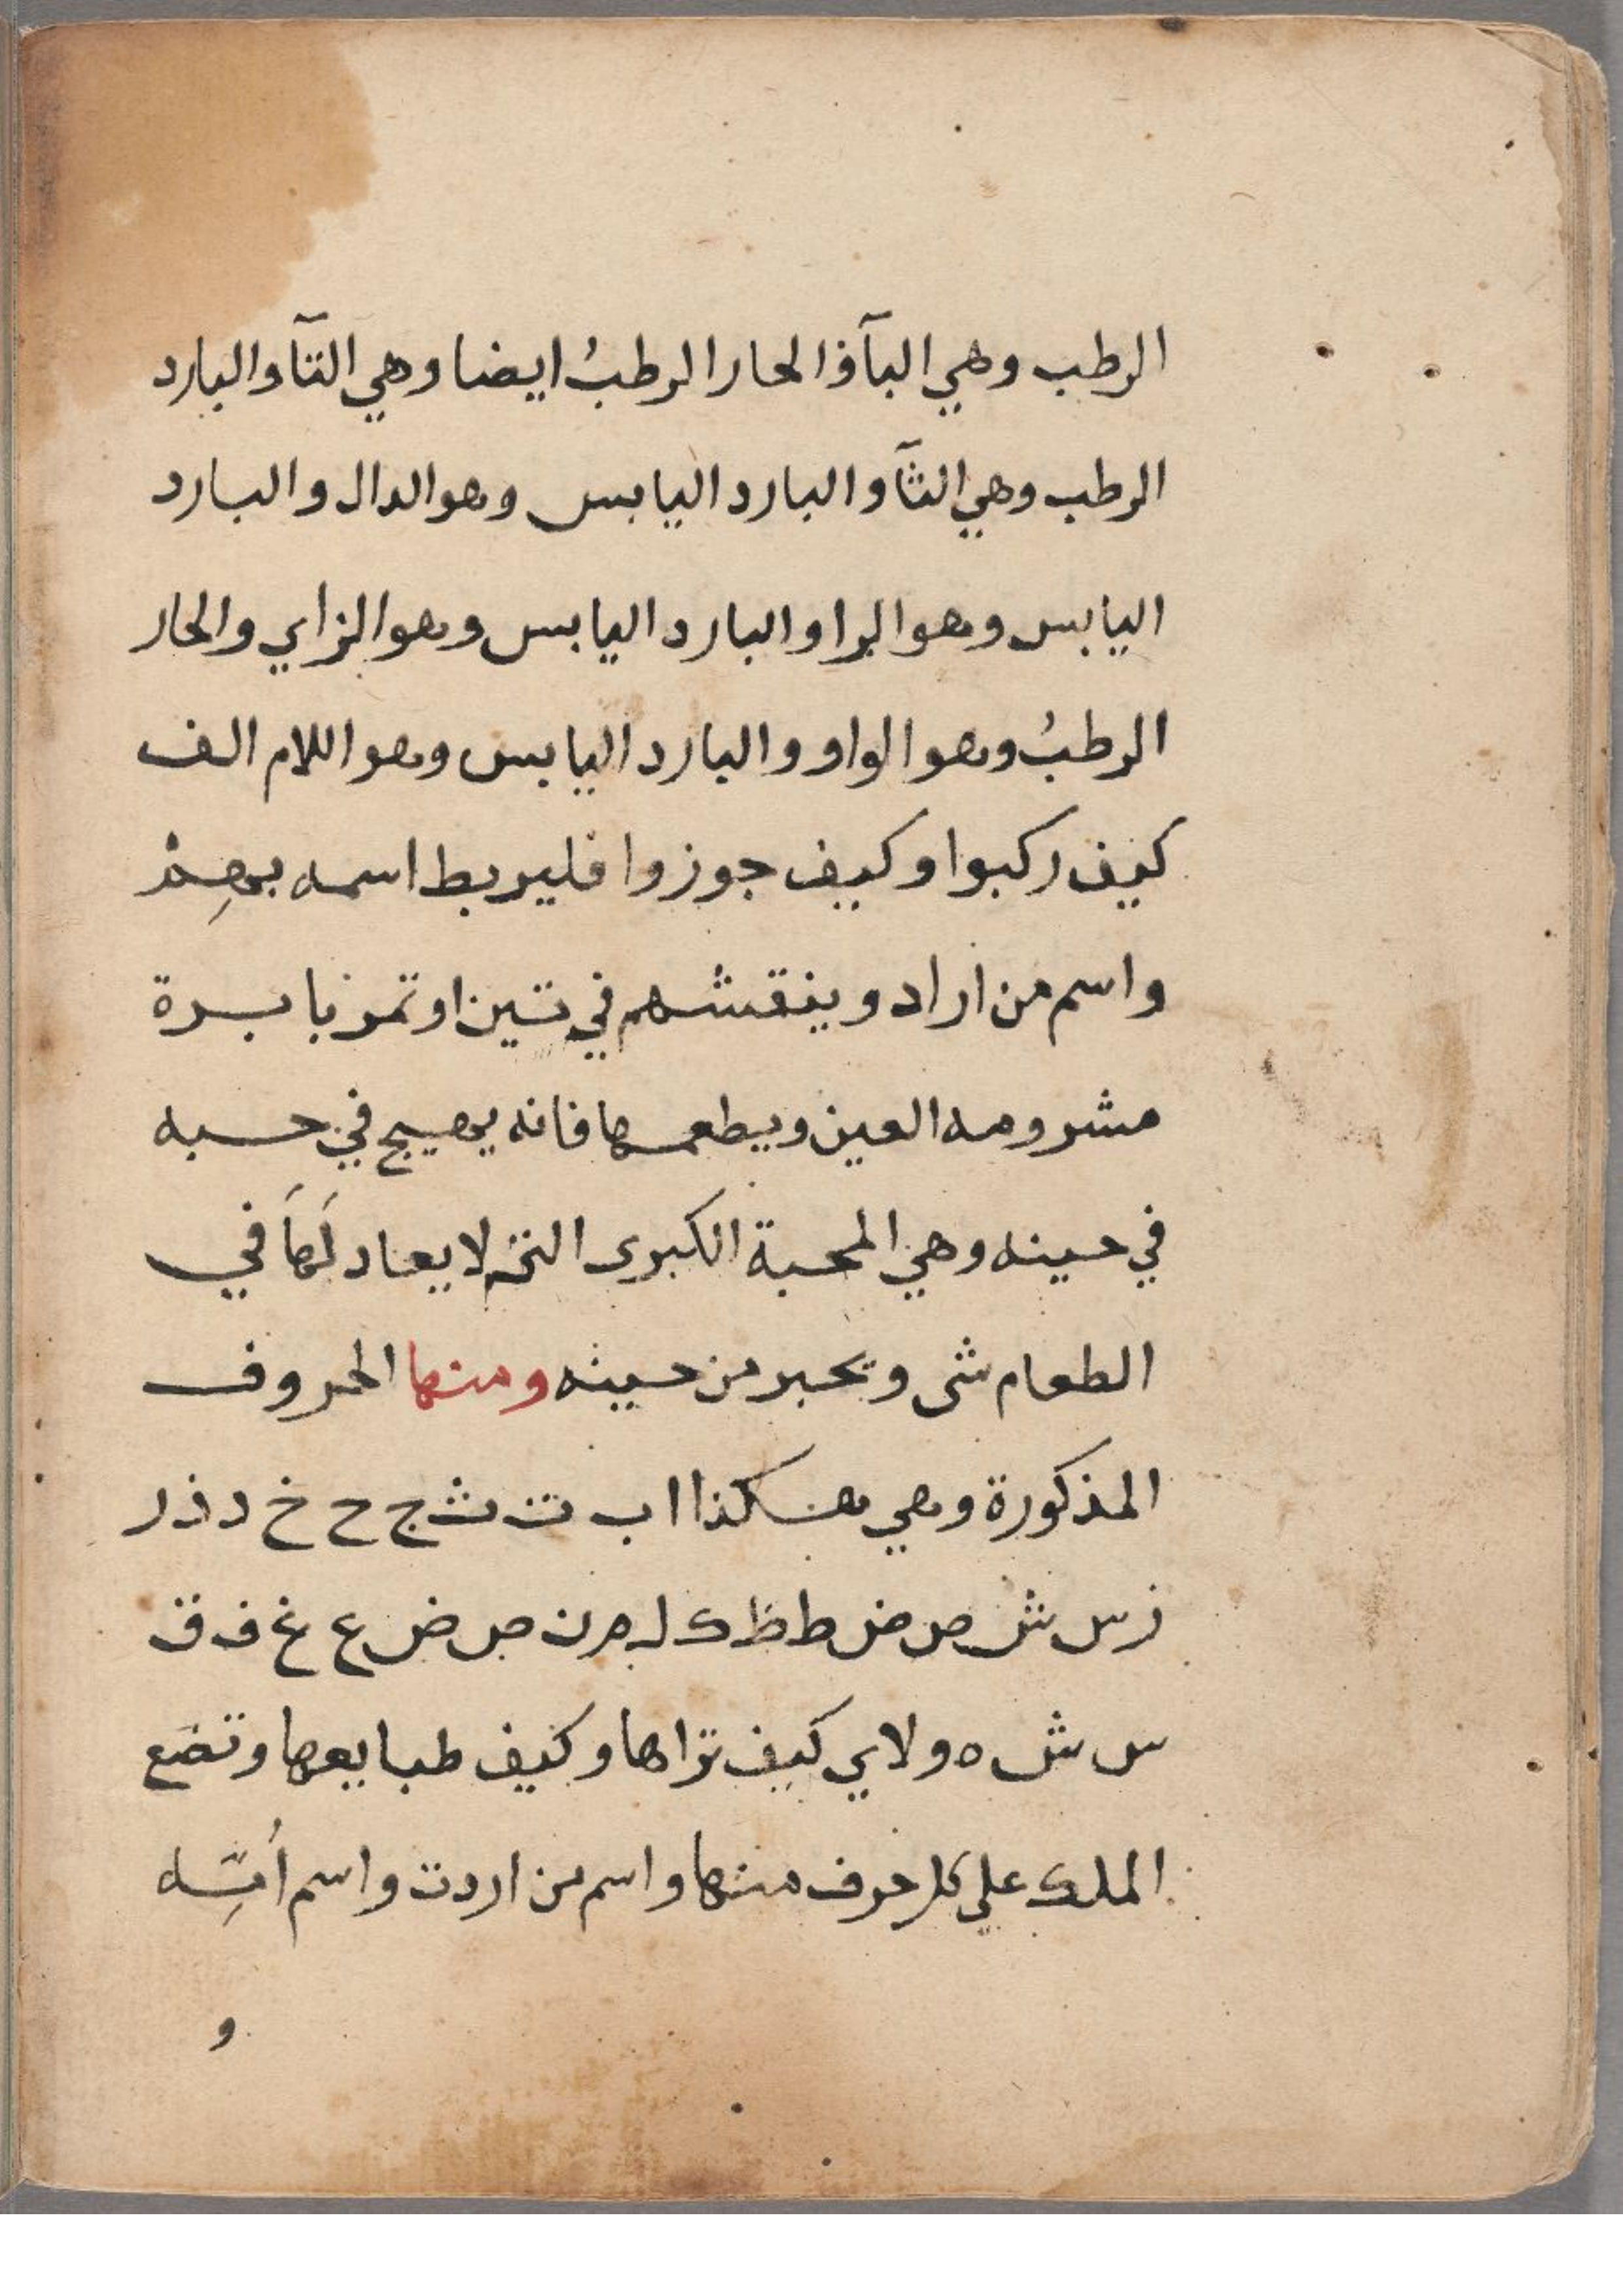 الرطب وهي البآ والحار الرطبُ ايضا وهي التآ والبارد
الرطب وهي الثآ والبارد اليابس وهو الدال والبارد
اليابس وهو الرا والبارد اليابس وهو الزاي والحار
الرطبُ وهو الواو والبارد اليابس وهو اللام الف
كيف ركبوا وكيف جوزوا فليربط اسمه بهِمْ
واسم من اراد وينقشهم في تين او تمر با برة
مشرومه العين ويطعمها فانه يهيج في حبه
في حينه وهي المحبة الكبرى التي لا يعاد لَهَا في
الطعام شى وتحبر من حينه ومنها الحروف
المذكورة وهي هكذا ا ب ت ث ج ح خ د ذ ر
ز س ش ص ض ط ظ ك ل م ن ص ض ع غ ف ق
س ش ه و لا ي كيف تراها وكيف طبايعها وتضع
الملك علي كل حرف منها واسم من اردت واسم اُمِّه
و